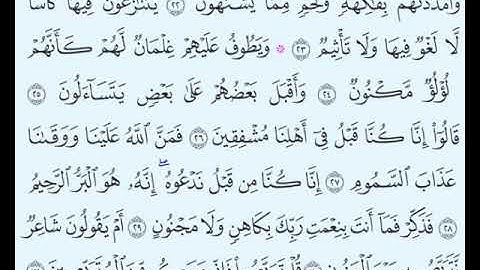 وَأَمْدَدْنَٰهُم بِفَٰكِهَةٍ وَلَحْمٍ مِّمَّا يَشْتَهُونَ ٢٢ يَتَنَٰزَعُونَ فِيهَا كَأْسًا
لَّا لَغْوٌ فِيهَا وَلَا تَأْثِيمٌ ٢٣ ۞ وَيَطُوفُ عَلَيْهِمْ غِلْمَانٌ لَّهُمْ كَأَنَّهُمْ
لُؤْلُؤٌ مَّكْنُونٌ ٢٤ وَأَقْبَلَ بَعْضُهُمْ عَلَىٰ بَعْضٍ يَتَسَآءَلُونَ ٢٥
قَالُوٓا۟ إِنَّا كُنَّا قَبْلُ فِىٓ أَهْلِنَا مُشْفِقِينَ ٢٦ فَمَنَّ ٱللَّهُ عَلَيْنَا وَوَقَىٰنَا
عَذَابَ ٱلسَّمُومِ ٢٧ إِنَّا كُنَّا مِن قَبْلُ نَدْعُوهُ ۖ إِنَّهُۥ هُوَ ٱلْبَرُّ ٱلرَّحِيمُ
٢٨ فَذَكِّرْ فَمَآ أَنتَ بِنِعْمَتِ رَبِّكَ بِكَاهِنٍ وَلَا مَجْنُونٍ ٢٩ أَمْ يَقُولُونَ شَاعِرٌ